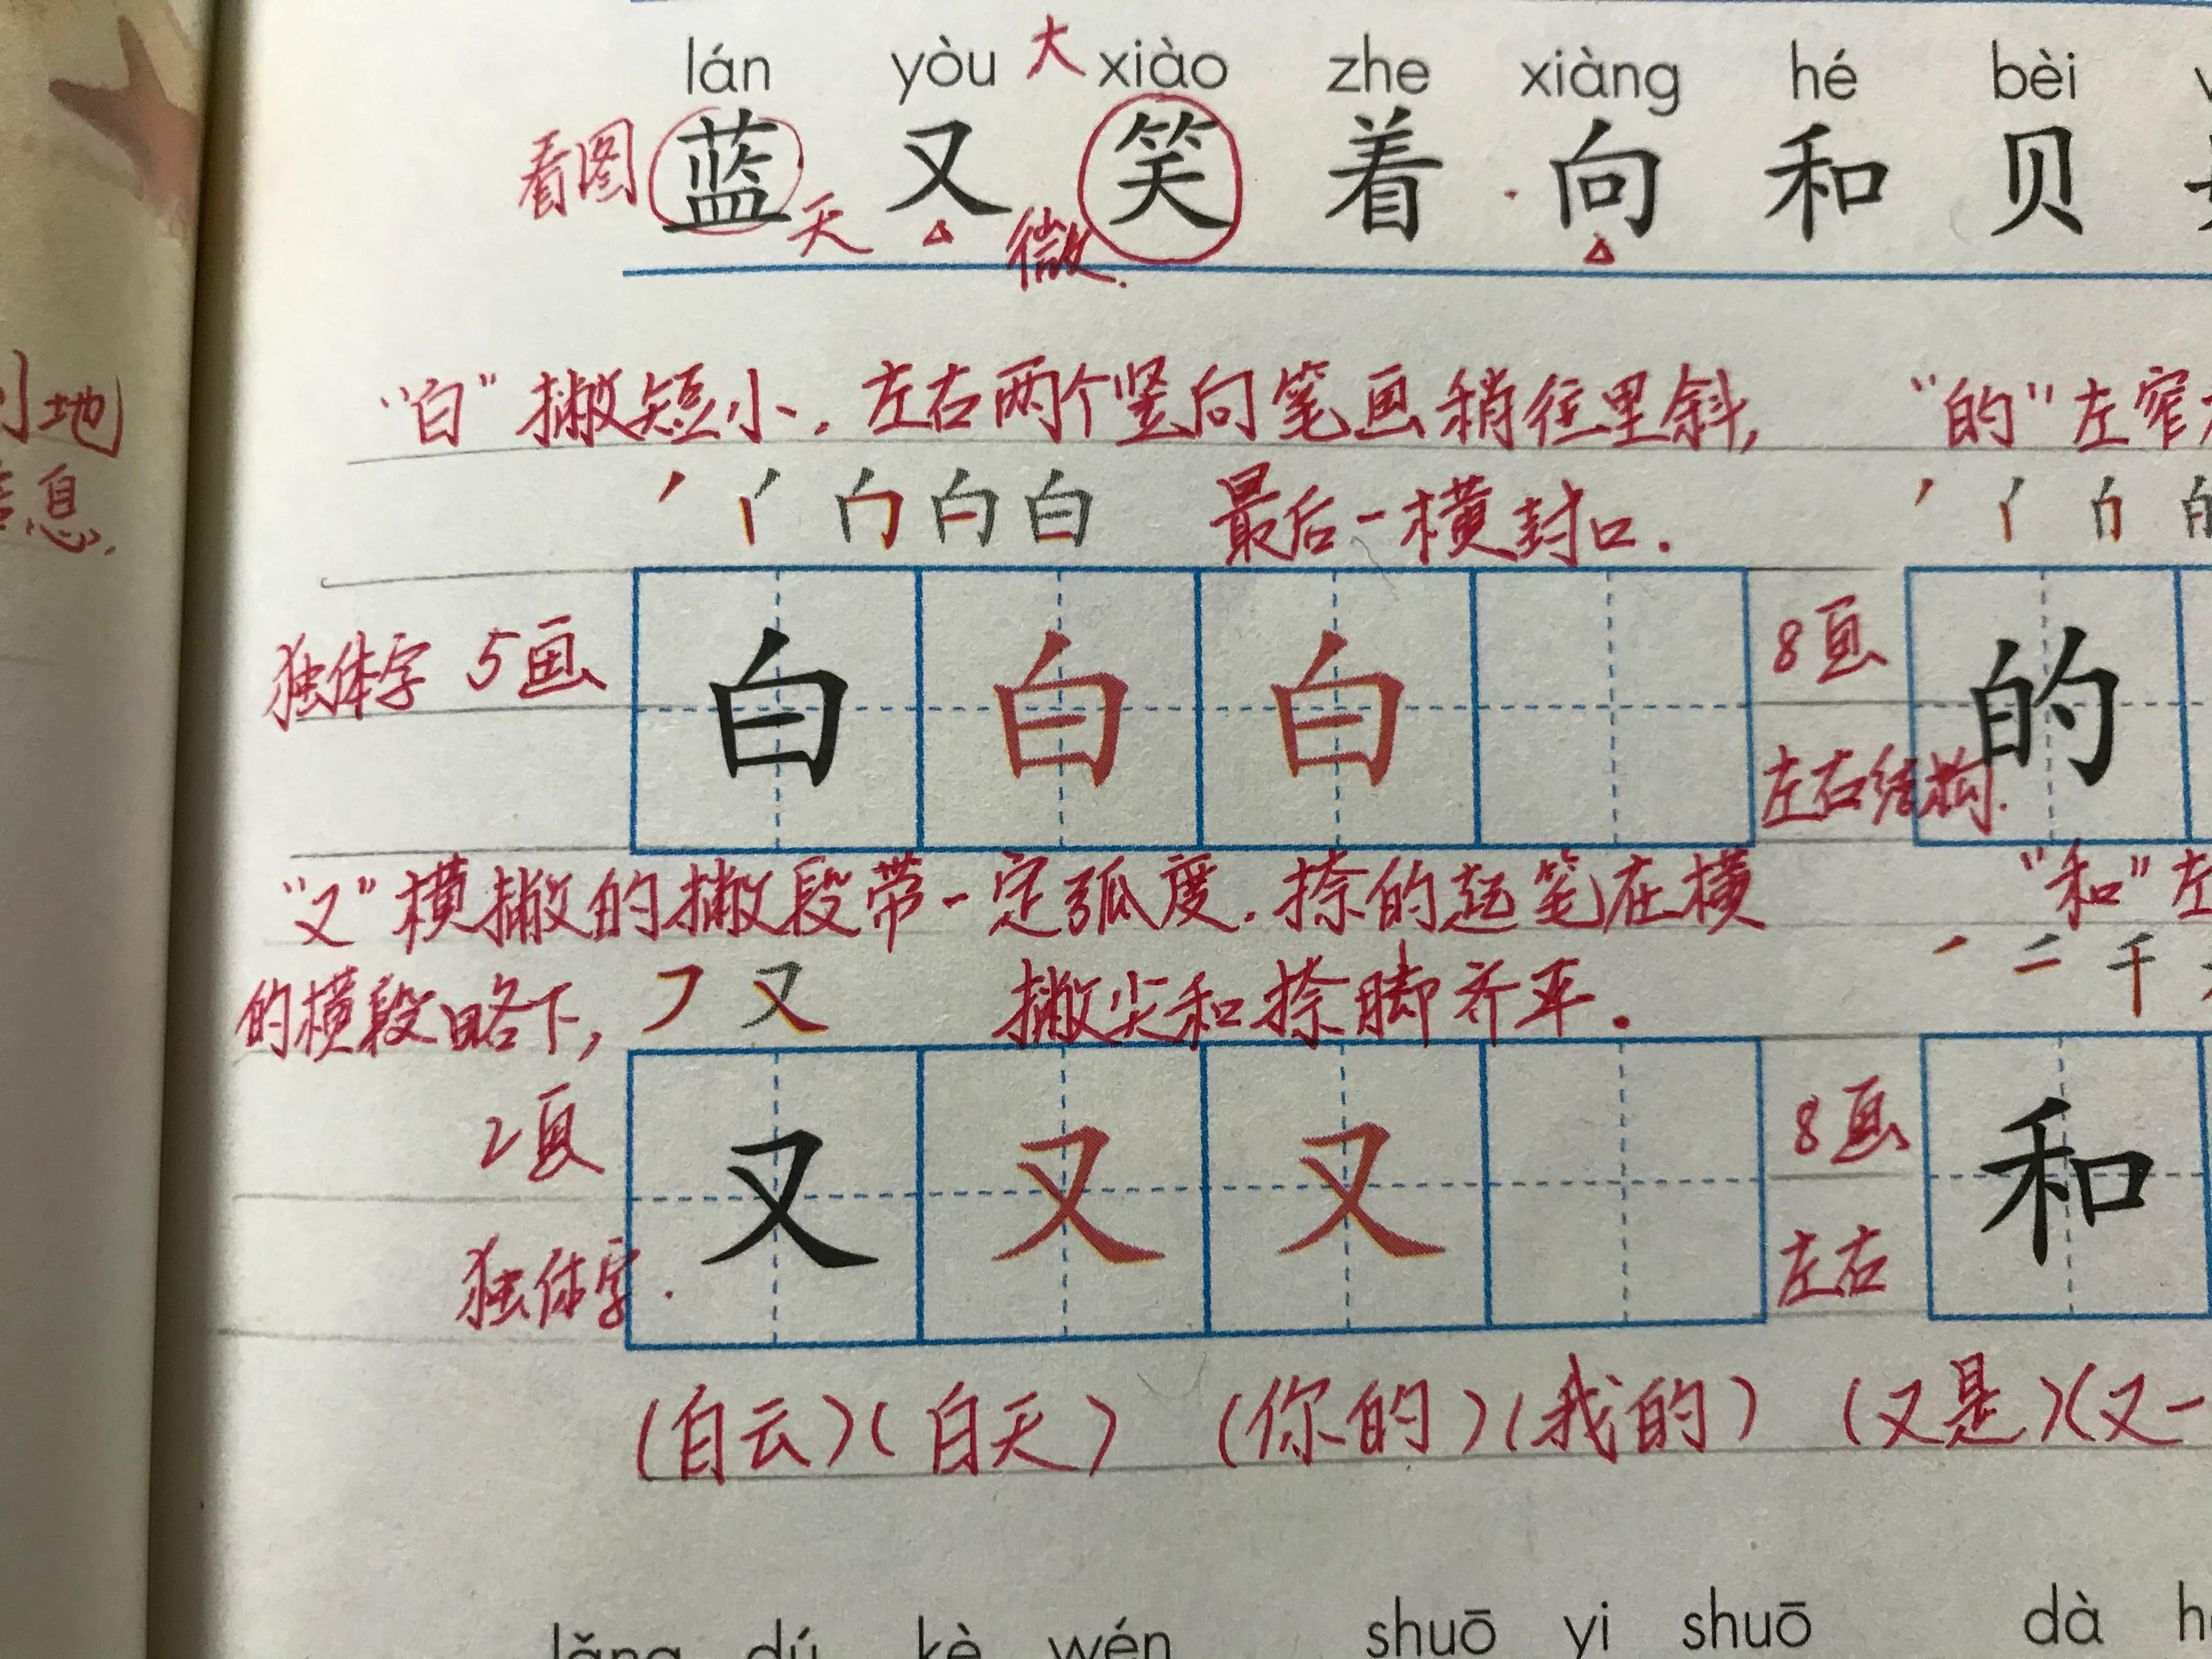 lán yòu 大 xiào zhe xiàng hé bèi
看图 蓝 又 笑 着 向 和 贝
天 微
地
息
"白"撇短小，左右两个竖向笔画稍往里斜，
"的"左窄
最后一横封口.
独体字 5画
白 白 白
8画
的
左右结构.
"又"横撇的撇段带一定弧度.捺的起笔在横
"和"左
的横段略下，
撇尖和捺脚齐平.
2画
独体字.
又 又 又
8画
左右
和
(白云)(白天) (你的)(我的) (又是)(又一
lǎng dú kè wén shuō yi shuō dà